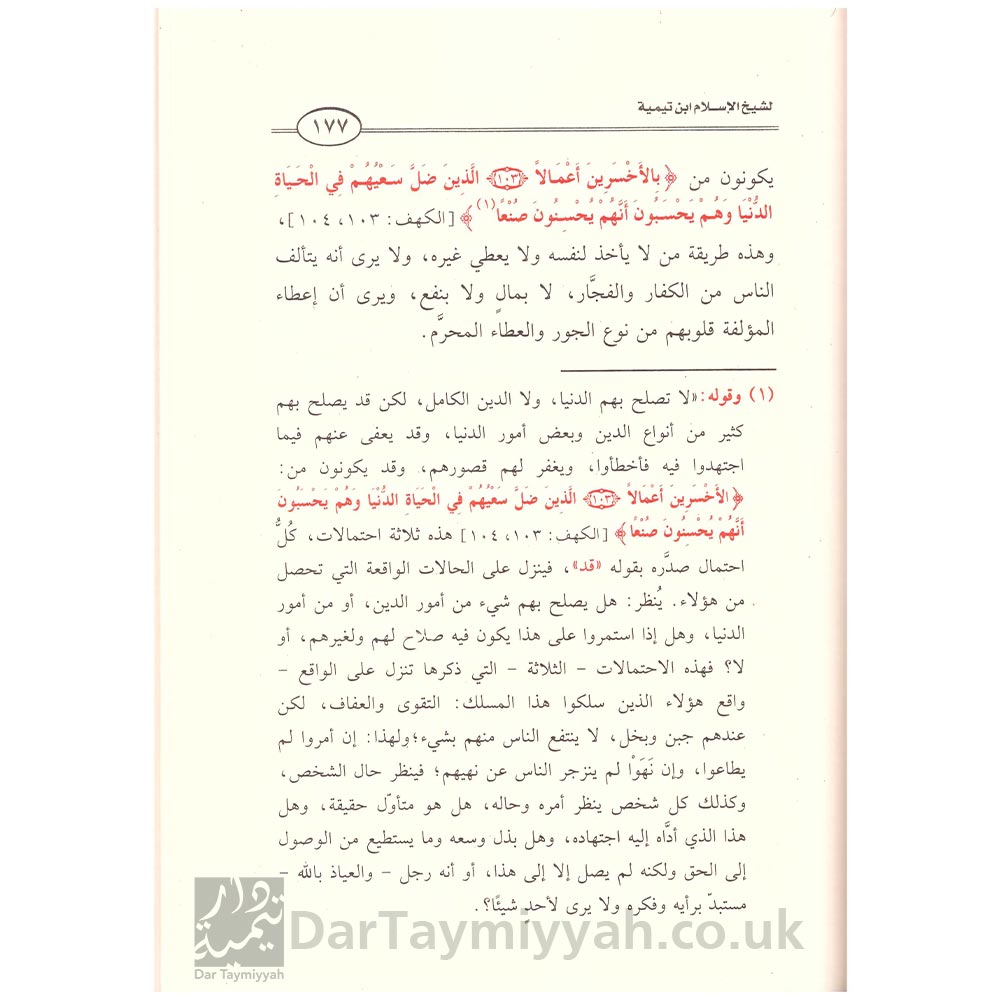 لشيخ الإسلام ابن تيمية
١٧٧
يكونون من ﴿بِالأَخْسَرِينَ أَعْمَالاً ﴿١٠٣﴾ الَّذِينَ ضَلَّ سَعْيُهُمْ فِي الْحَيَاةِ
الدُّنْيَا وَهُمْ يَحْسَبُونَ أَنَّهُمْ يُحْسِنُونَ صُنْعًا(١)﴾ [الكهف: ١٠٣، ١٠٤]،
وهذه طريقة من لا يأخذ لنفسه ولا يعطي غيره، ولا يرى أنه يتألف
الناس من الكفار والفجَّار، لا بمالٍ ولا بنفع، ويرى أن إعطاء
المؤلفة قلوبهم من نوع الجور والعطاء المحرَّم.
(١) وقوله: «لا تصلح بهم الدنيا، ولا الدين الكامل، لكن قد يصلح بهم
كثير من أنواع الدين وبعض أمور الدنيا، وقد يعفى عنهم فيما
اجتهدوا فيه فأخطأوا، ويغفر لهم قصورهم، وقد يكونون من:
﴿الأَخْسَرِينَ أَعْمَالاً ﴿١٠٣﴾ الَّذِينَ ضَلَّ سَعْيُهُمْ فِي الْحَيَاةِ الدُّنْيَا وَهُمْ يَحْسَبُونَ
أَنَّهُمْ يُحْسِنُونَ صُنْعًا﴾ [الكهف: ١٠٣، ١٠٤] هذه ثلاثة احتمالات، كُلُّ
احتمال صدَّره بقوله «قد»، فينزل على الحالات الواقعة التي تحصل
من هؤلاء. يُنظر: هل يصلح بهم شيء من أمور الدين، أو من أمور
الدنيا، وهل إذا استمروا على هذا يكون فيه صلاح لهم ولغيرهم، أو
لا؟ فهذه الاحتمالات – الثلاثة – التي ذكرها تنزل على الواقع –
واقع هؤلاء الذين سلكوا هذا المسلك: التقوى والعفاف، لكن
عندهم جبن وبخل، لا ينتفع الناس منهم بشيء؛ولهذا: إن أمروا لم
يطاعوا، وإن نَهَوْا لم ينزجر الناس عن نهيهم؛ فينظر حال الشخص،
وكذلك كل شخص ينظر أمره وحاله، هل هو متأوّل حقيقة، وهل
هذا الذي أدَّاه إليه اجتهاده، وهل بذل وسعه وما يستطيع من الوصول
إلى الحق ولكنه لم يصل إلا إلى هذا، أو أنه رجل – والعياذ بالله –
مستبدّ برأيه وفكره ولا يرى لأحدٍ شيئًا؟.
دار تيمية
Dar Taymiyyah
DarTaymiyyah.co.uk